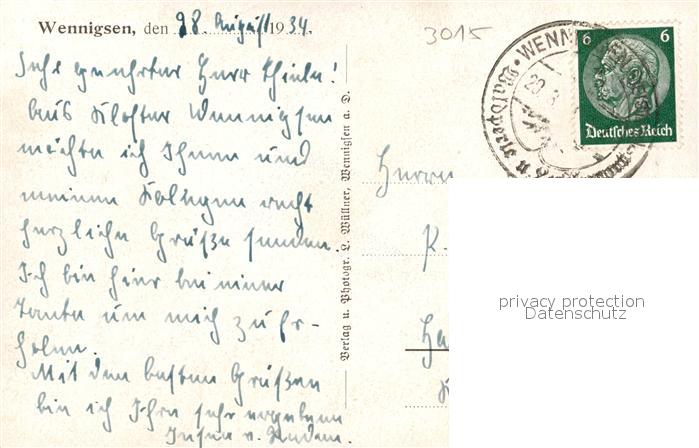 Wennigsen, den 28. August 1934.
3015
Sehr geehrter Herr Thiele!
Aus Kloster Wennigsen
möchte ich Ihnen und
meinen Kollegen recht
herzliche Grüße senden.
Ich bin hier bei meiner
Tante um mich zu er-
holen.
Mit den besten Grüßen
bin ich Ihre sehr ergebene
v.
Verlag u. Photogr. L. Wüllner, Wennigsen a. D.
WENNIGSEN
6 6
Deutsches Reich
Herrn
K.
privacy protection
Datenschutz